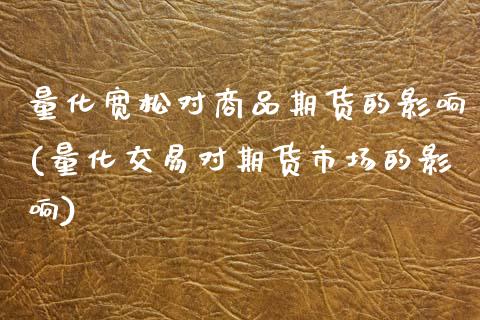 量化宽松对商品期货的影响
(量化交易对期货市场的影
响)